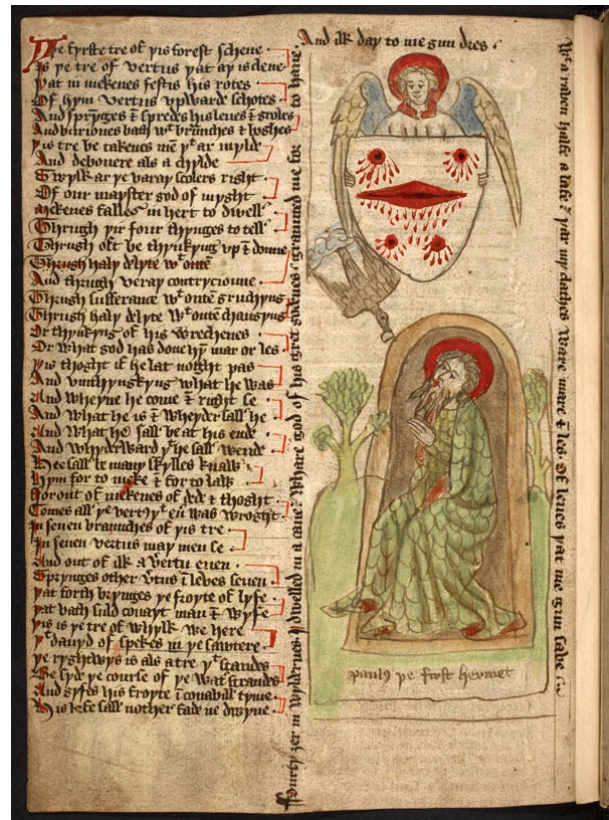 Þe fyrste tre of þis forest schene
Is þe tre of vertus þat ay is clene
Þat in mekenes festis his rotes
Of hym vertus vpwarde schotes
And sprynges & spredes his leues & groues
And buriones bath wt braunches & boghes
Þis tre be takenes men þt ar mylde
And debonere als a childe
Swylk ar þe varay scolers right
Of our mayster god of myght
Mekenes falles in hert to dwell
Thrugh þir four thynges to tell
Thrugh oft be thynkyng vp & doune
Thrugh haly delyte wt outē
And thrugh veray contrycioune
Thrugh sufferance wt outē gruchyng
Thrugh haly delyte wt outē chaungyng
Or thynkyng of his wrechenes
Or what god has done hym mar or les
Þis thoght if he lat noght pas
And vmthynkyng what he was
And wheyne he come & right se
And what he is & wheyder sall he
And what he sall be at his ende
And whyderward þt he sall wende
Hee sall be many skylles knaw
Hym for to meke & for to law
For out of mekenes of ded & thoght
Comes all þe vertus þt eu was wroght
In seuen braunches of þis tre
In seuen vertus may men se
And out of ilk a vertu euen
Sprynges other vertus & leues seuen
Þat forth brynges þe froyte of lyfe
Þat bath suld couayt man & wyfe
Þis is þe tre of whylk we here
Þt dauyd of spekes in þe sawtere
Þe ryghtwys is als a tre þt standes
Be syde þe course of þe wat strandes
And gyfes his froyte i conabill tyme
His lefe sall nother fade ne dwyne
Fourty ȝer in wyldernes I dwelled in a caue Whare god of his gret godenes graunted me for to haue
And ilk day to me gun dres
Wt a raven halfe a lafe & þar my clathes ware mare & les Of leues þat me gun sade
paulꝰ þe first hermet